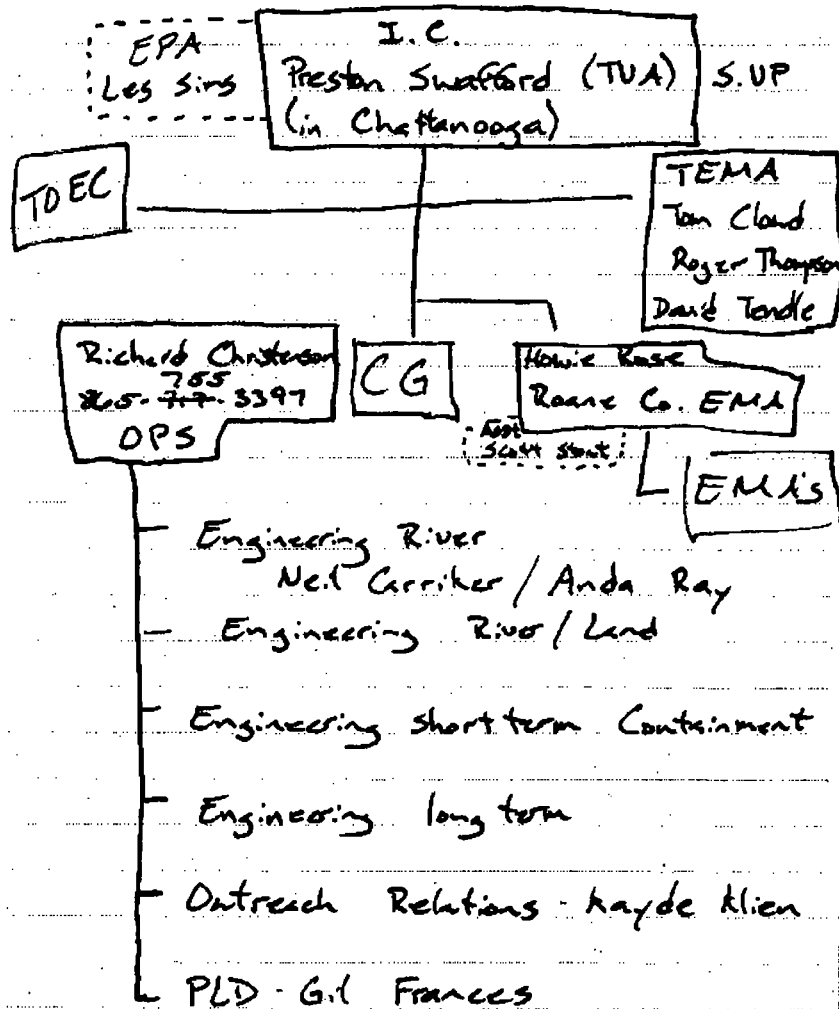 EPA
Les Sims
I.C.
Preston Swafford (TVA)
(in Chattanooga)
S.VP
TDEC
TEMA
Tom Cloud
Roger Thompson
David Tendle
Richard Christenson
755
865-717-3397
OPS
CG
Howie Rose
Roane Co. EMA
Scott Stout
EMA's
Engineering River
Neil Carriker / Anda Ray
Engineering River / Land
Engineering short term Containment
Engineering long term
Outreach Relations - Kayde Klien
PLD - Gil Frances